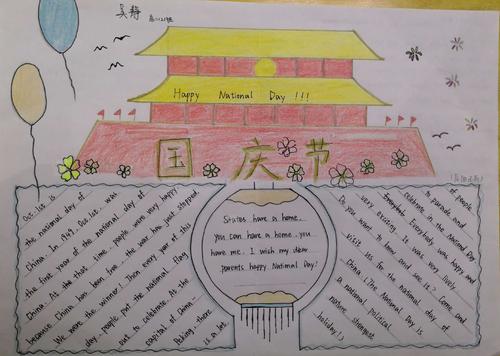 吴静
Happy National Day !!!
国庆节
Oct. 1st is
the national day of
China. In 1949. Oct. 1st. was
the first year of the national day of
China. At the that time. people were very happy
because China has been free. the war has just stopped.
We were the winner! Then every year of this
day. people put the national flag
out to celebrate. As the
capital of China—
Peking. there
is a lot
States have a home.
you can have a home. you
have me. I wish my dear
parents happy National Day!
of people
to parade and
celebrate in the National Day
Everybody was happy and
very exciting. It was very lively.
Do you want to have once see it? Come and
visit us for the national day of
China! (The National day of
a national political
nature strongest
holiday!)